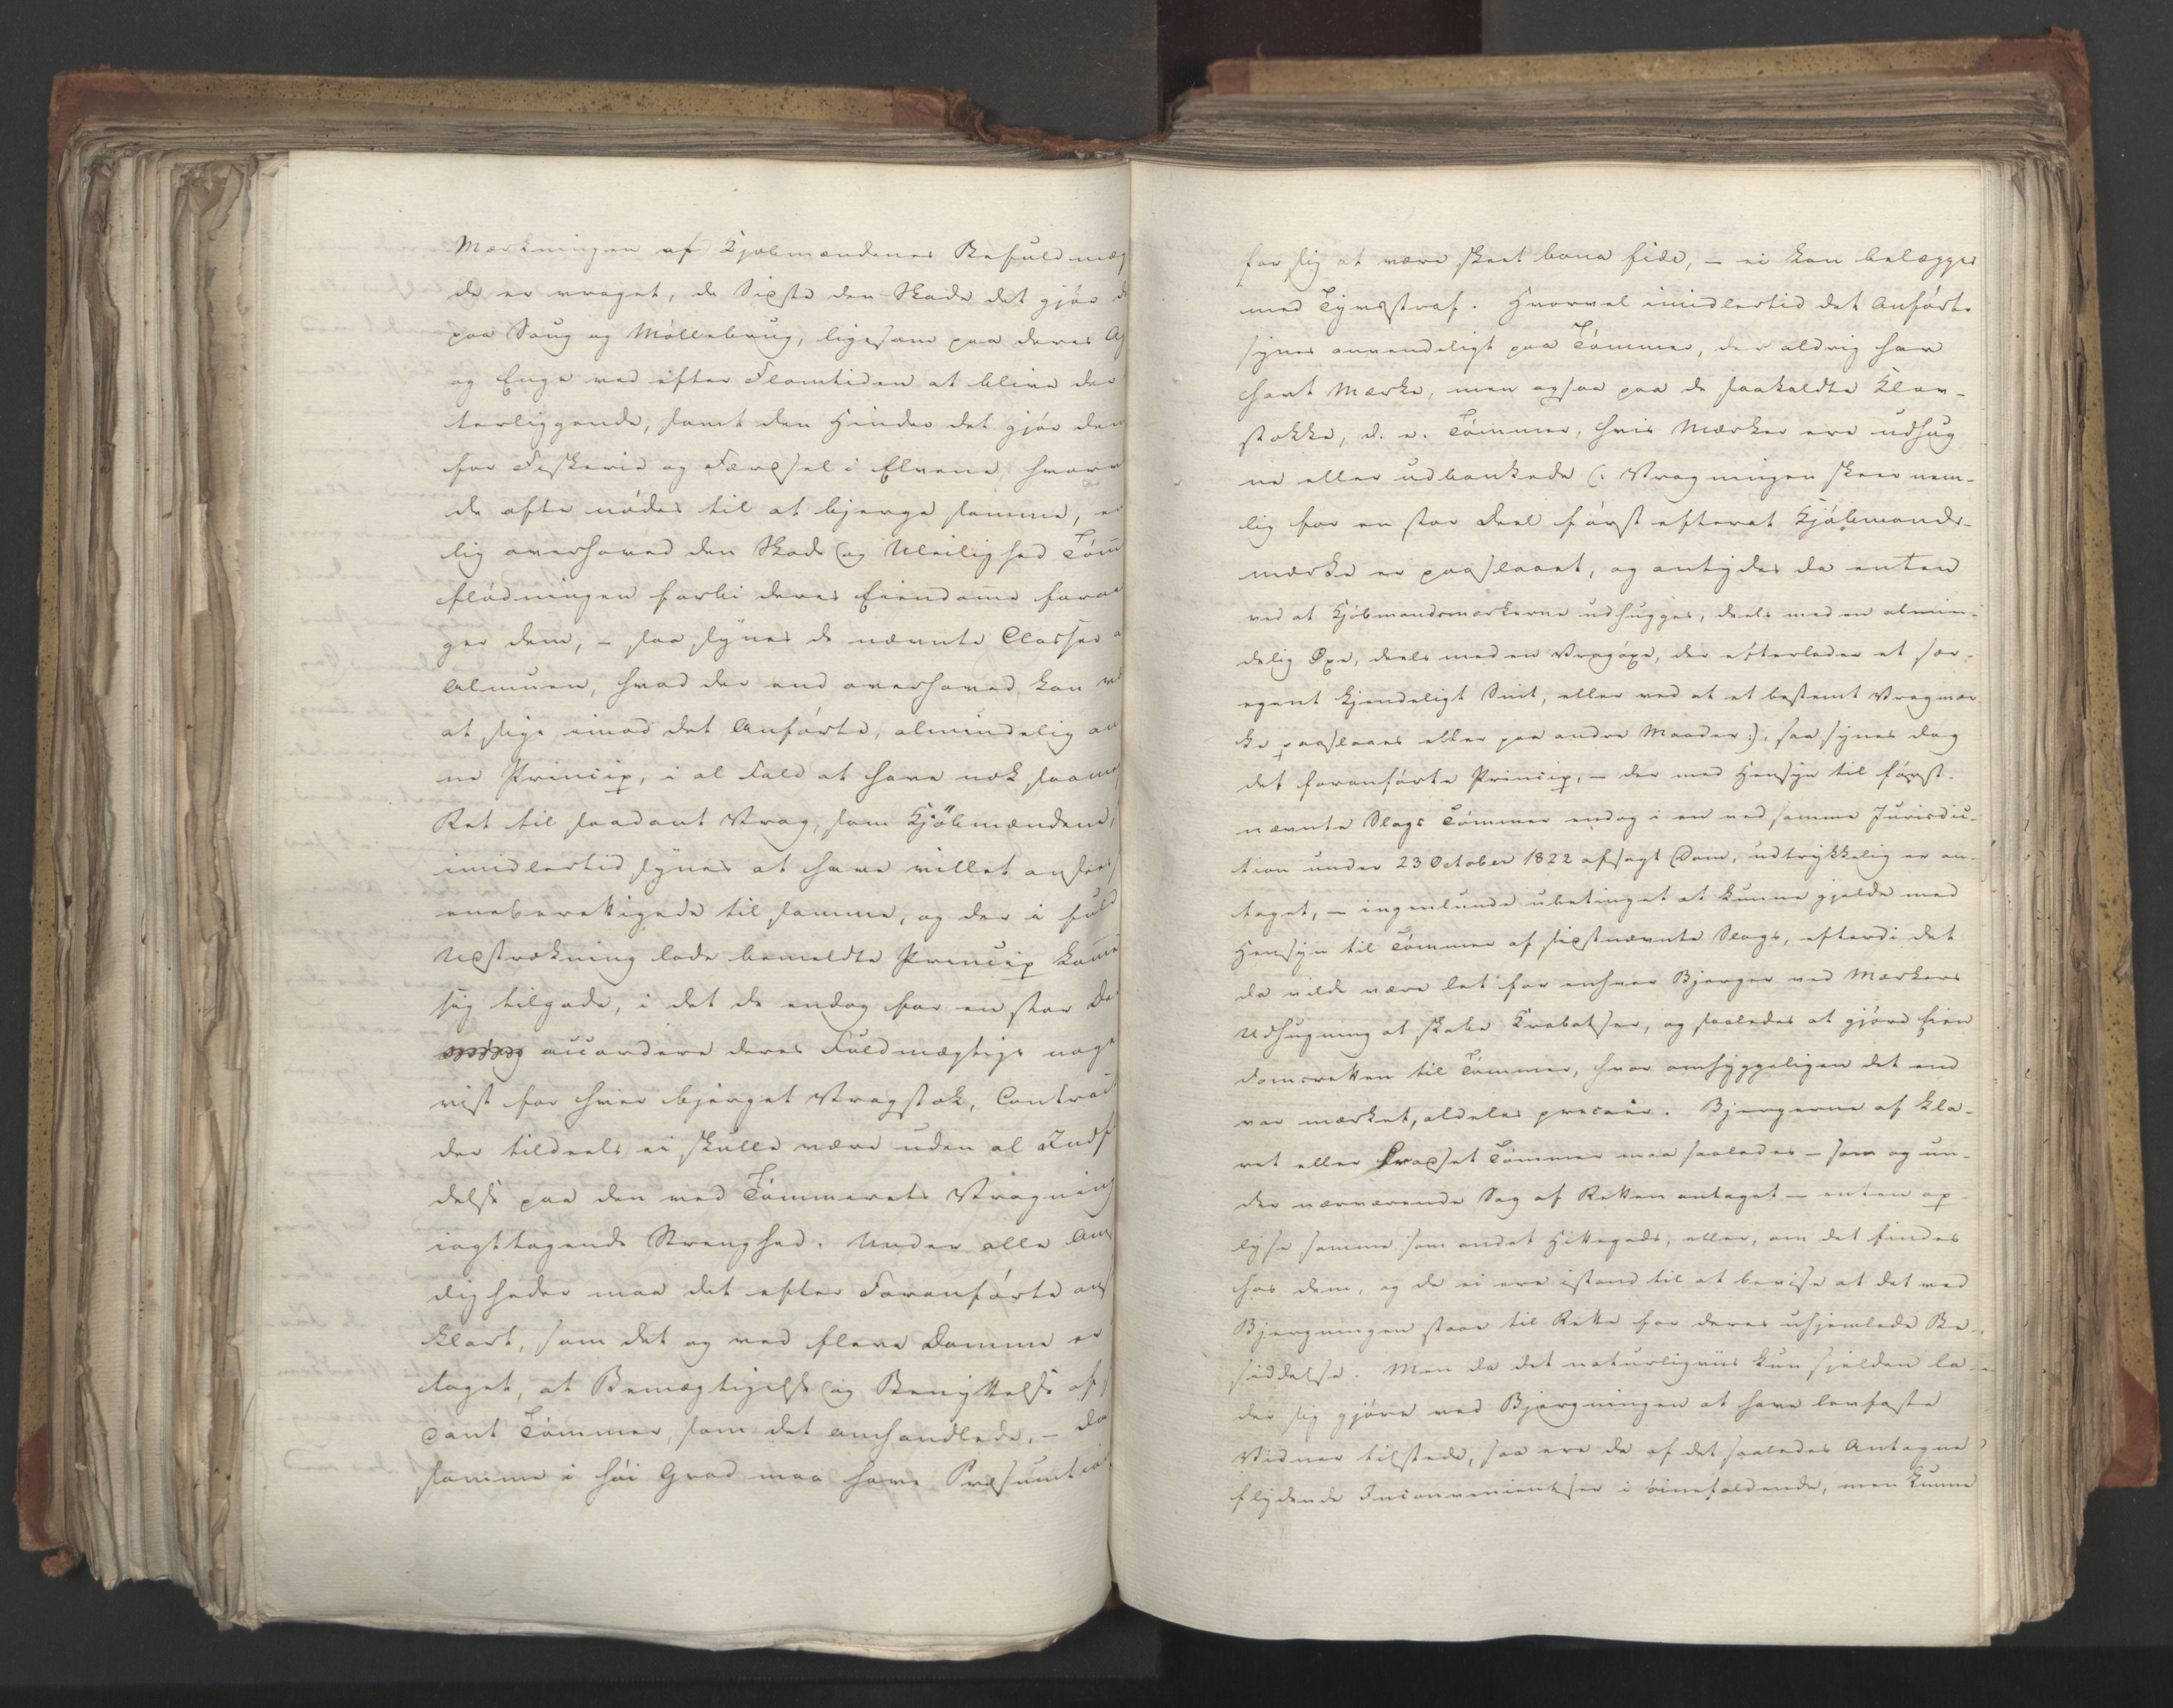 Mærkningen af Kjøbmændenes Befuldmæg
de er vraget, de Sidste den Skade det gjør d
paa Saug og Møllebrug, ligesom paa deres Ag
og Enge ved efter Flomtiden at blive der
terliggende, samt den Hinder det gjør dem
for Fiskerie og Færdsel i Elvene, hvor
de ofte nødes til at bjerge samme, en
lig overhoved den Skade og Uleilighed Tøm
flødningen forbi deres Eiendomme foraar
ger dem, – saa synes de nævnte Classer a
Almuen, hvad der end overhoved kan væ
at sige imod det Anførte, almindelig an
ne Princip, i al Fald at have nok saameg
Ret til saadant Vrag, som Kjöbmændene,
imidlertid synes at have villet ansees
eneberettigede til samme, og der i fuld
Udstrækning lade bemeldte Princip komme
sig tilgode, i det de endog for en stor De
accordere deres Fuldmægtige noge
vist for hver bjerget Vragstok, Contract
der tildeels ei skulle være uden al Indfl
delse paa den ved Tømmerets Vragning
iagttagende Strenghed. Under alle Om
digheder maa det efter Foranførte ans
klart, som det og ved flere Domme er
taget, at Bemægtigelse og Benyttelse af s
dant Tømmer, som det omhandlede, – da
samme i høi Grad maa have Præsumtion
for sig at være skeet bona fide, – ei kan belægges
med Tyvsstraf. Hvorvel imidlertid det Anførte
synes anvendeligt paa Tømmer, der aldrig har
havt Mærke, men ogsaa paa de saakaldte Klov-
stokke, d. e. Tømmer, hvis Mærker ere udhug
ne eller udbankede (: Vragningen skeer nem-
lig for en stor Deel først efterat Kjøbmands-
mærke er paaslaaet, og antydes da enten
ved at Kjøbmandsmærkerne udhugges, deels med en almin-
delig Øxe, deels med en Vragøxe, der efterlader et sær-
egent kjendeligt Snit, eller ved at et bestemt Vragmær
ke paaslaaes eller paa andre Maader :), saa synes dog
det foranførte Princip, – der med Hensyn til først-
nævnte Slags Tømmer endog i en ved samme Jurisdic-
tion under 23 October 1822 afsagt Dom, udtrykkelig er an-
taget, – ingenlunde ubetinget at kunne gjelde med
Hensyn til Tømmer af sidstnævnte Slags, efterdi det
da vilde være let for enhver Bjerger ved Mærkers
Udhugning at skabe Krabatser, og saaledes at gjøre Eien
domsretten til Tømmer, hvor omhyggeligen det end
var mærket, aldeles precair. Bjergerne af kla-
vet eller Tømmer maa saaledes – som og un-
der nærværende Sag af Retten antaget – enten op-
lyse samme som andet Hittegods, eller, om det findes
hos dem, og de ei ere istand til at bevise at det ved
Bjergningen staae til Rette for deres uhjemlede Be-
siddelse. Men da det naturligviis kun sjelden la-
der sig gjøre ved Bjergningen at have lovfaste
Vidner tilstede, saa ere de af det saaledes Antagne
flydende Inconvenientser i øinefaldende, men kunne